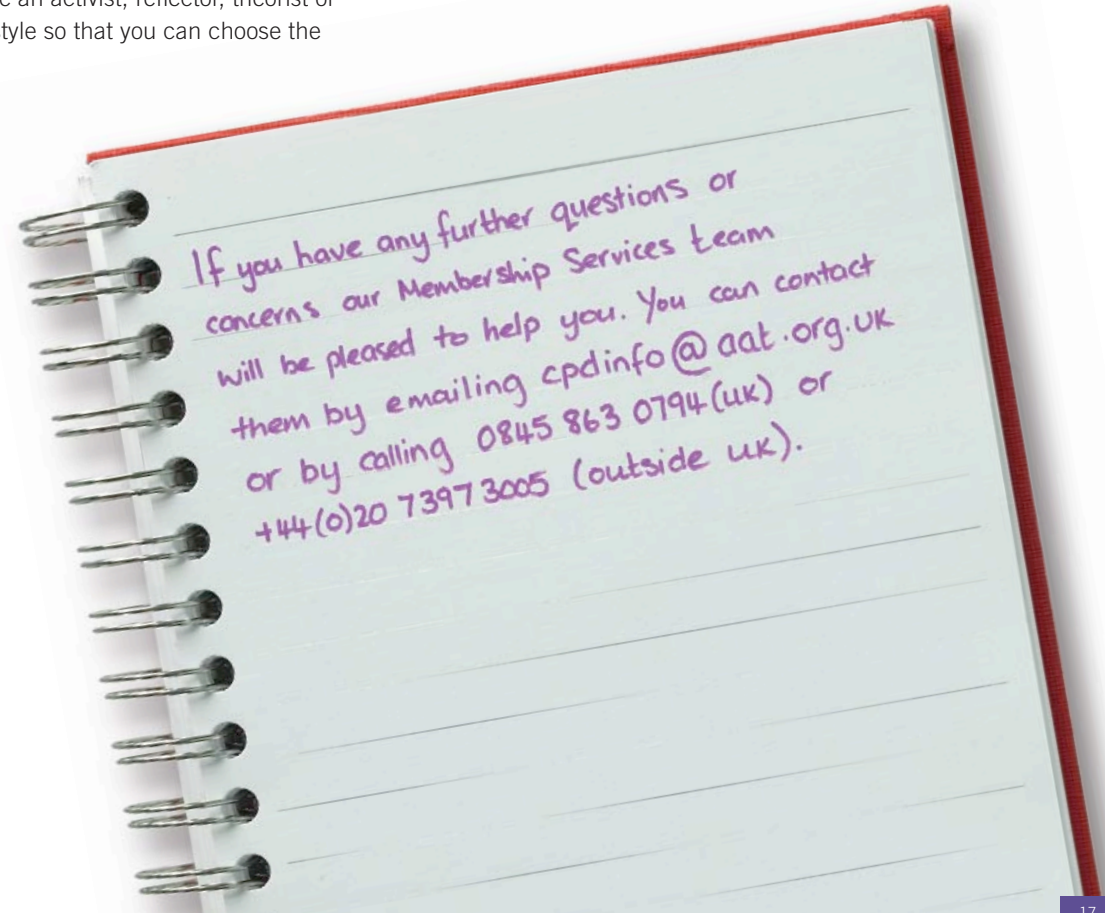 e an activist, reflector, theorist or
style so that you can choose the
If you have any further questions or
concerns our Membership Services team
will be pleased to help you. You can contact
them by emailing cpdinfo@aat.org.uk
or by calling 0845 863 0794 (UK) or
+44(0)20 7397 3005 (outside UK).
17